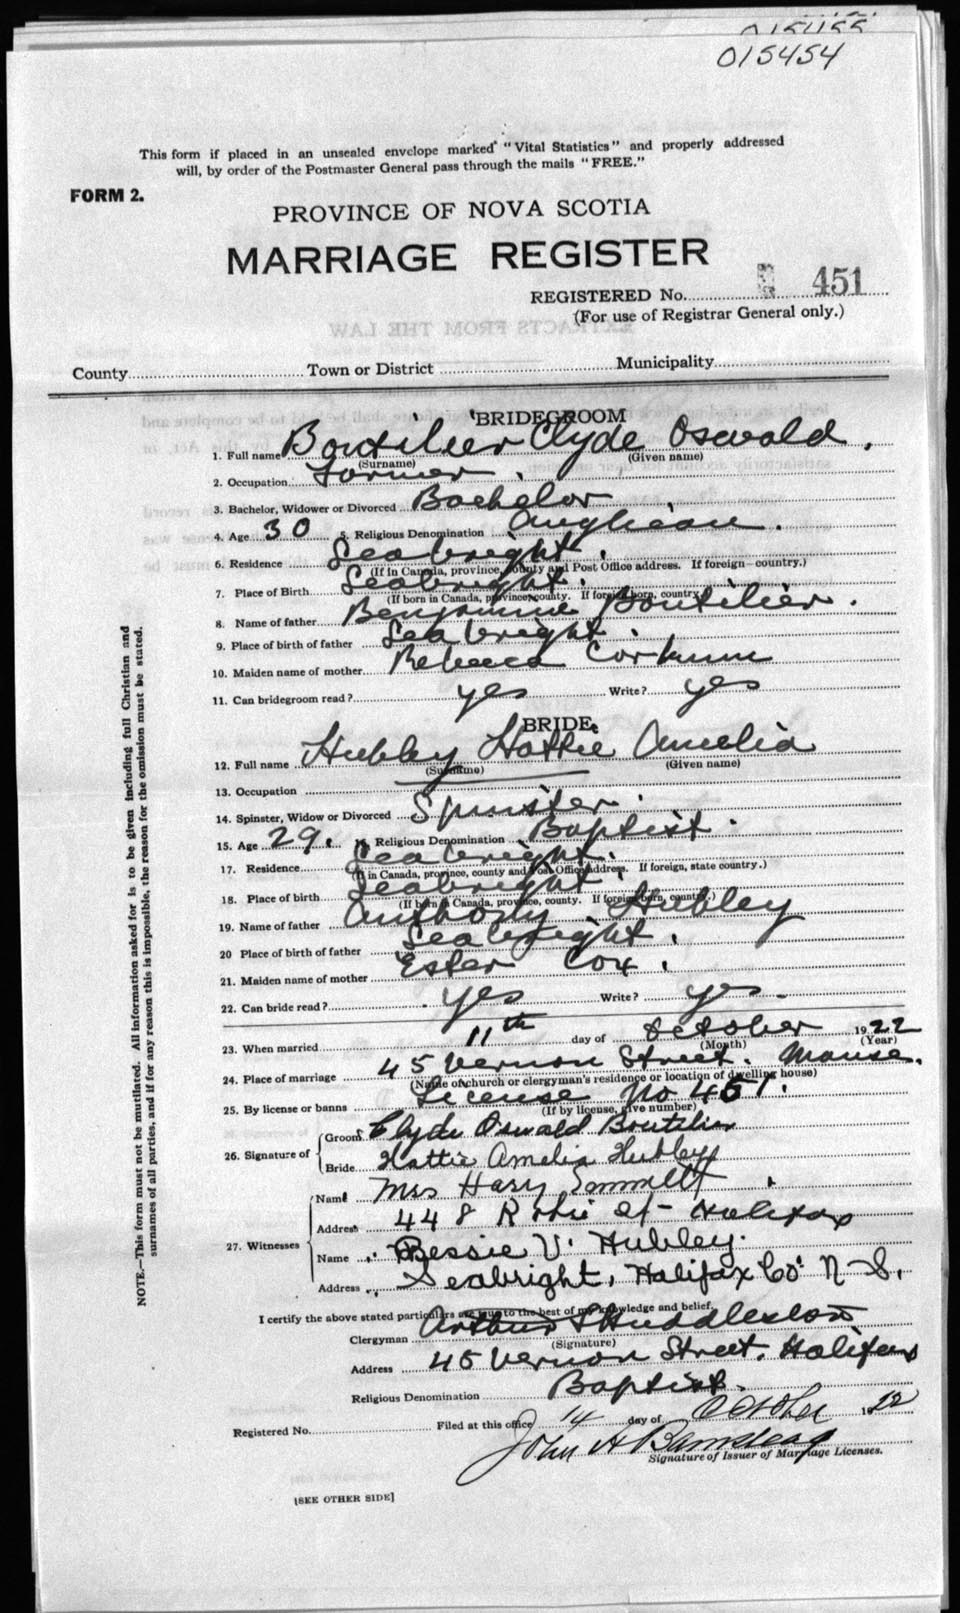 015455
015454
This form if placed in an unsealed envelope marked "Vital Statistics" and properly addressed
will, by order of the Postmaster General pass through the mails "FREE."
FORM 2.
PROVINCE OF NOVA SCOTIA
MARRIAGE REGISTER
REGISTERED No. 451
(For use of Registrar General only.)
County Town or District Municipality
BRIDEGROOM
1. Full name Boutilier Clyde Oswald.
(Surname) (Given name)
2. Occupation Farmer.
3. Bachelor, Widower or Divorced Bachelor
4. Age 30 5. Religious Denomination Anglican.
6. Residence Seabright.
(If in Canada, province, county and Post Office address. If foreign—country.)
7. Place of Birth Seabright.
(If born in Canada, province, county. If foreign born, country.)
8. Name of father Benjamine Boutilier.
9. Place of birth of father Seabright.
10. Maiden name of mother Rebecca Corkum
11. Can bridegroom read? yes Write? yes
BRIDE
12. Full name Hubley Hattie Amelia
(Surname) (Given name)
13. Occupation
14. Spinster, Widow or Divorced Spinster.
15. Age 29. 16. Religious Denomination Baptist.
17. Residence Seabright.
(If in Canada, province, county and Post Office address. If foreign, state country.)
18. Place of birth Seabright.
(If born in Canada, province, county. If foreign born, country.)
19. Name of father Anthony Hubley
20 Place of birth of father Seabright.
21. Maiden name of mother Ester Cox.
22. Can bride read? yes Write? yes.
23. When married 11th day of October 1922
(Month) (Year)
24. Place of marriage 45 Vernon Street. Manse.
(Name of church or clergyman's residence or location of dwelling house)
25. By license or banns License No 451.
(If by license, give number)
26. Signature of Groom Clyde Oswald Boutilier
Bride Hattie Amelia Hubley
27. Witnesses Name Mrs Hary Emmett
Address 448 St Halifax
Name Bessie V. Hubley.
Address Seabright, Halifax Co. N-S.
I certify the above stated particulars are true to the best of my knowledge and belief.
Clergyman Arthur Huddleston
(Signature)
Address 45 Vernon Street. Halifax
Religious Denomination Baptist.
Registered No. Filed at this office 14 day of October 1922
John A
Signature of Issuer of Marriage Licenses.
[SEE OTHER SIDE]
NOTE.—This form must not be mutilated. All information asked for is to be given including full Christian and
surnames of all parties, and if for any reason this is impossible, the reason for the omission must be stated.